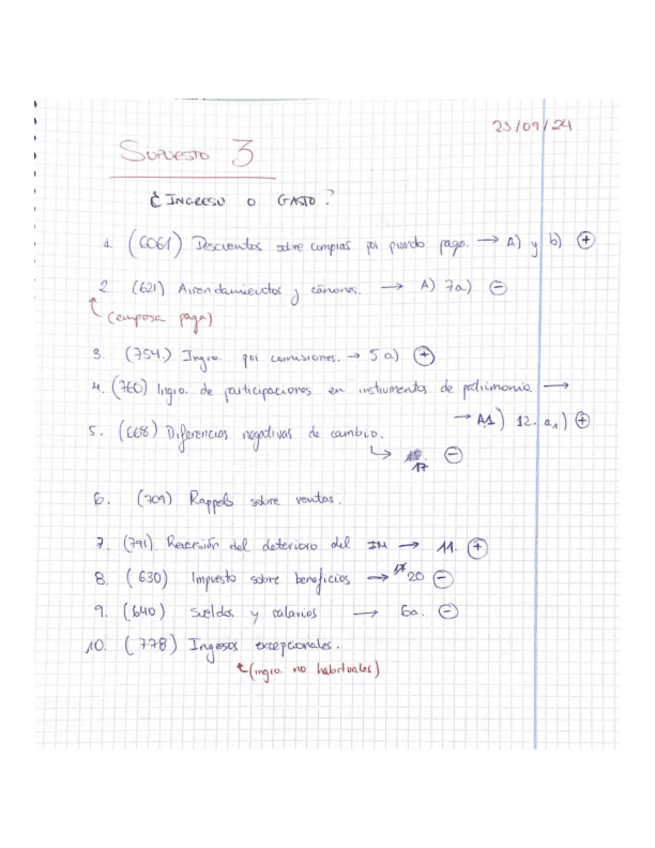 23/09/24
SUPUESTO 3
¿INGRESO O GASTO?
1. (6061) Descuentos sobre compras por pronto pago. → A) y b) +
2. (621) Arrendamientos y cánones. → A) 7a) −
(empresa paga)
3. (754) Ingre. por comisiones. → 5 a) +
4. (760) Ingre. de participaciones en instrumentos de patrimonio. →
→ A1) 12. a1) +
5. (668) Diferencias negativas de cambio.
↳ 17 −
6. (709) Rappels sobre ventas.
7. (791). Reversión del deterioro del IM → 11. +
8. (630) Impuesto sobre beneficios → 20 −
9. (640) Sueldos y salarios → 6a. −
10. (778) Ingresos excepcionales.
(ingre. no habituales)